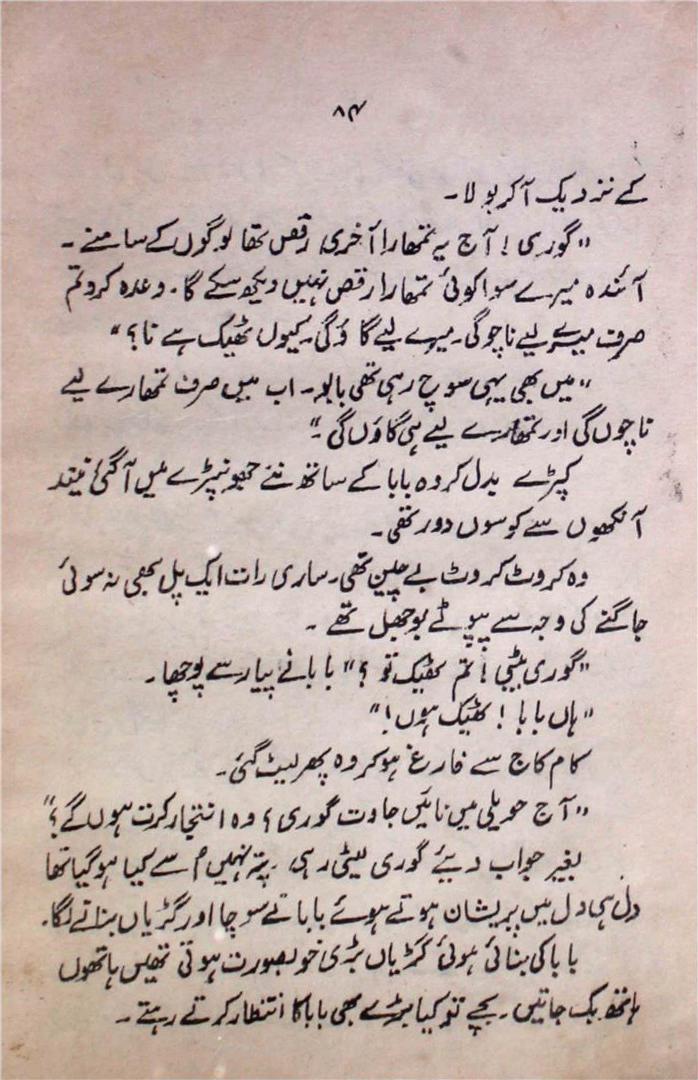 ۸۴
کے نزدیک آکر بولا۔
"گوری! آج یہ تمھارا آخری رقص تھا لوگوں کے سامنے۔
آئندہ میرے سوا کوئی تمھارا رقص نہیں دیکھ سکے گا۔ وعدہ کرو تم
صرف میرے لیے ناچو گی۔ میرے لیے گاؤ گی۔ کیوں ٹھیک ہے نا؟"
"میں بھی یہی سوچ رہی تھی بابو۔ اب میں صرف تمھارے لیے
ناچوں گی اور تمھارے لیے ہی گاؤں گی۔"
کپڑے بدل کر وہ بابا کے ساتھ نئے جھونپڑے میں آگئی نیند
آنکھوں سے کوسوں دور تھی۔
وہ کروٹ کروٹ بے چین تھی۔ ساری رات ایک پل بھی نہ سوئی
جاگنے کی وجہ سے پپوٹے بوجھل تھے۔
"گوری بیٹی! تم ٹھیک تو؟" بابا نے پیار سے پوچھا۔
"ہاں بابا! ٹھیک ہوں!"
کام کاج سے فارغ ہو کر وہ پھر لیٹ گئی۔
"آج حویلی میں نائیں جاوت گوری؟ وہ انتجار کرت ہوں گے؟"
بغیر جواب دیئے گوری لیٹی رہی۔ پتہ نہیں اُسے کیا ہو گیا تھا
دل ہی دل میں پریشان ہوتے ہوئے بابا نے سوچا اور گڑیاں بنانے لگا۔
بابا کی بنائی ہوئی گڑیاں بڑی خوبصورت ہوتی تھیں ہاتھوں
ہاتھ بک جاتیں۔ بچے تو کیا بڑے بھی بابا کا انتظار کرتے رہتے۔